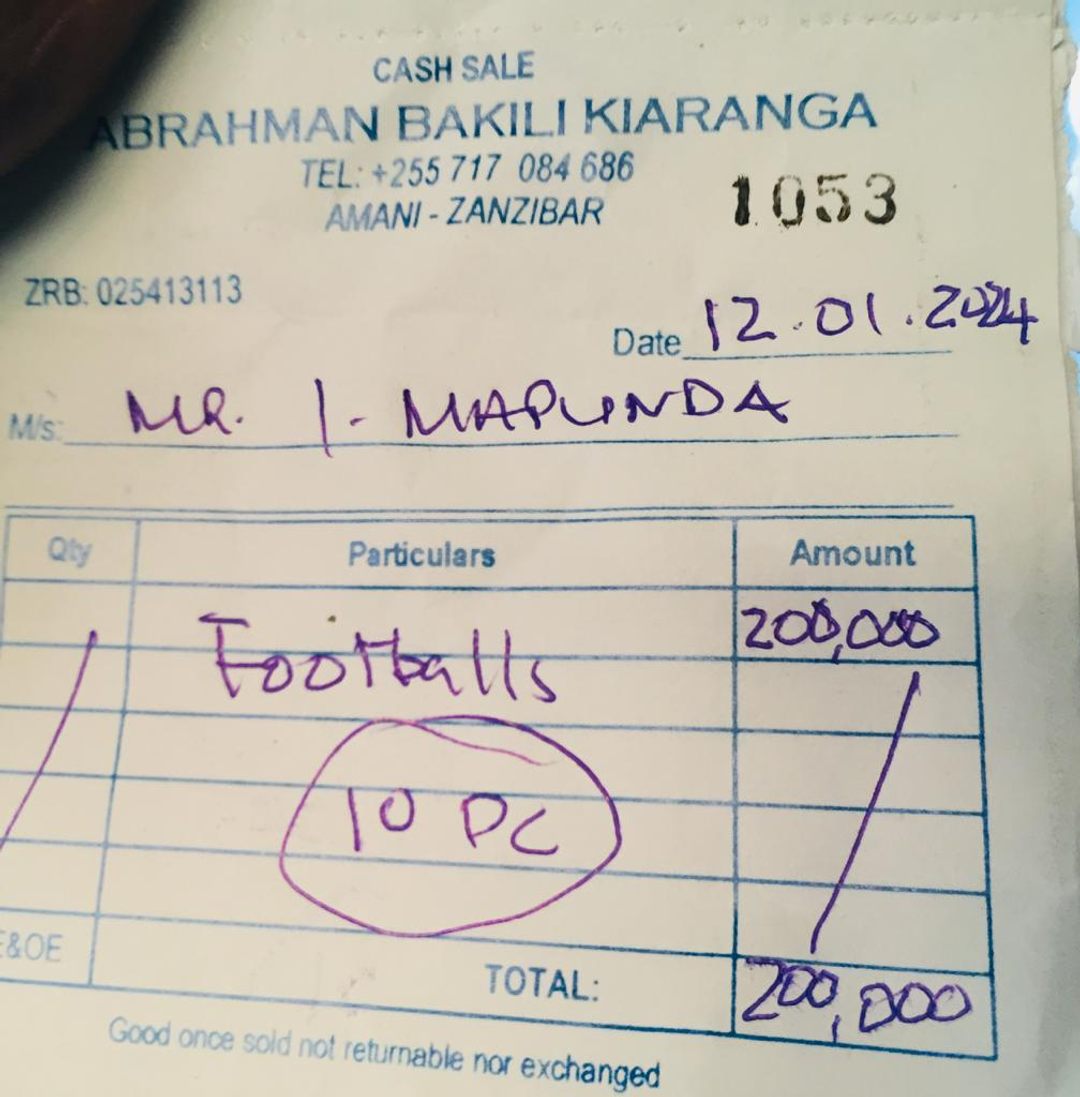 CASH SALE
ABRAHMAN BAKILI KIARANGA
TEL: +255 717 084 686
AMANI - ZANZIBAR
1053
ZRB: 025413113
Date 12.01.2024
M/s: MR. I. MAPUNDA
Qty Particulars Amount
Footballs 200,000
10 PC
E&OE TOTAL: 200,000
Good once sold not returnable nor exchanged